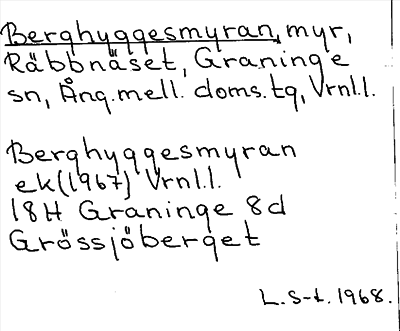 Berghyggesmyran, myr,
Räbbnäset, Graninge
sn, Ång.mell. doms.tg, Vrnl.l.
Berghyggesmyran
ek(1967) Vrnl.l.
18H Graninge 8d
Grössjöberget
L. S-t. 1968.